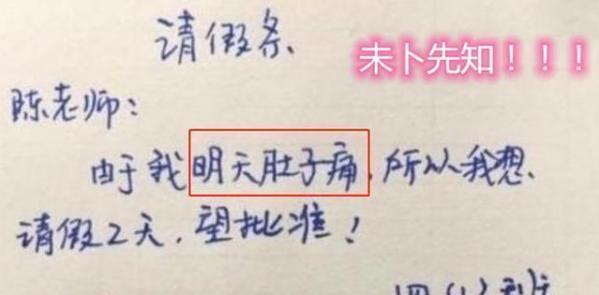 请假条
未卜先知！！！
陈老师：
由于我明天肚子痛，所以我想
请假2天，望批准！
四(1)班